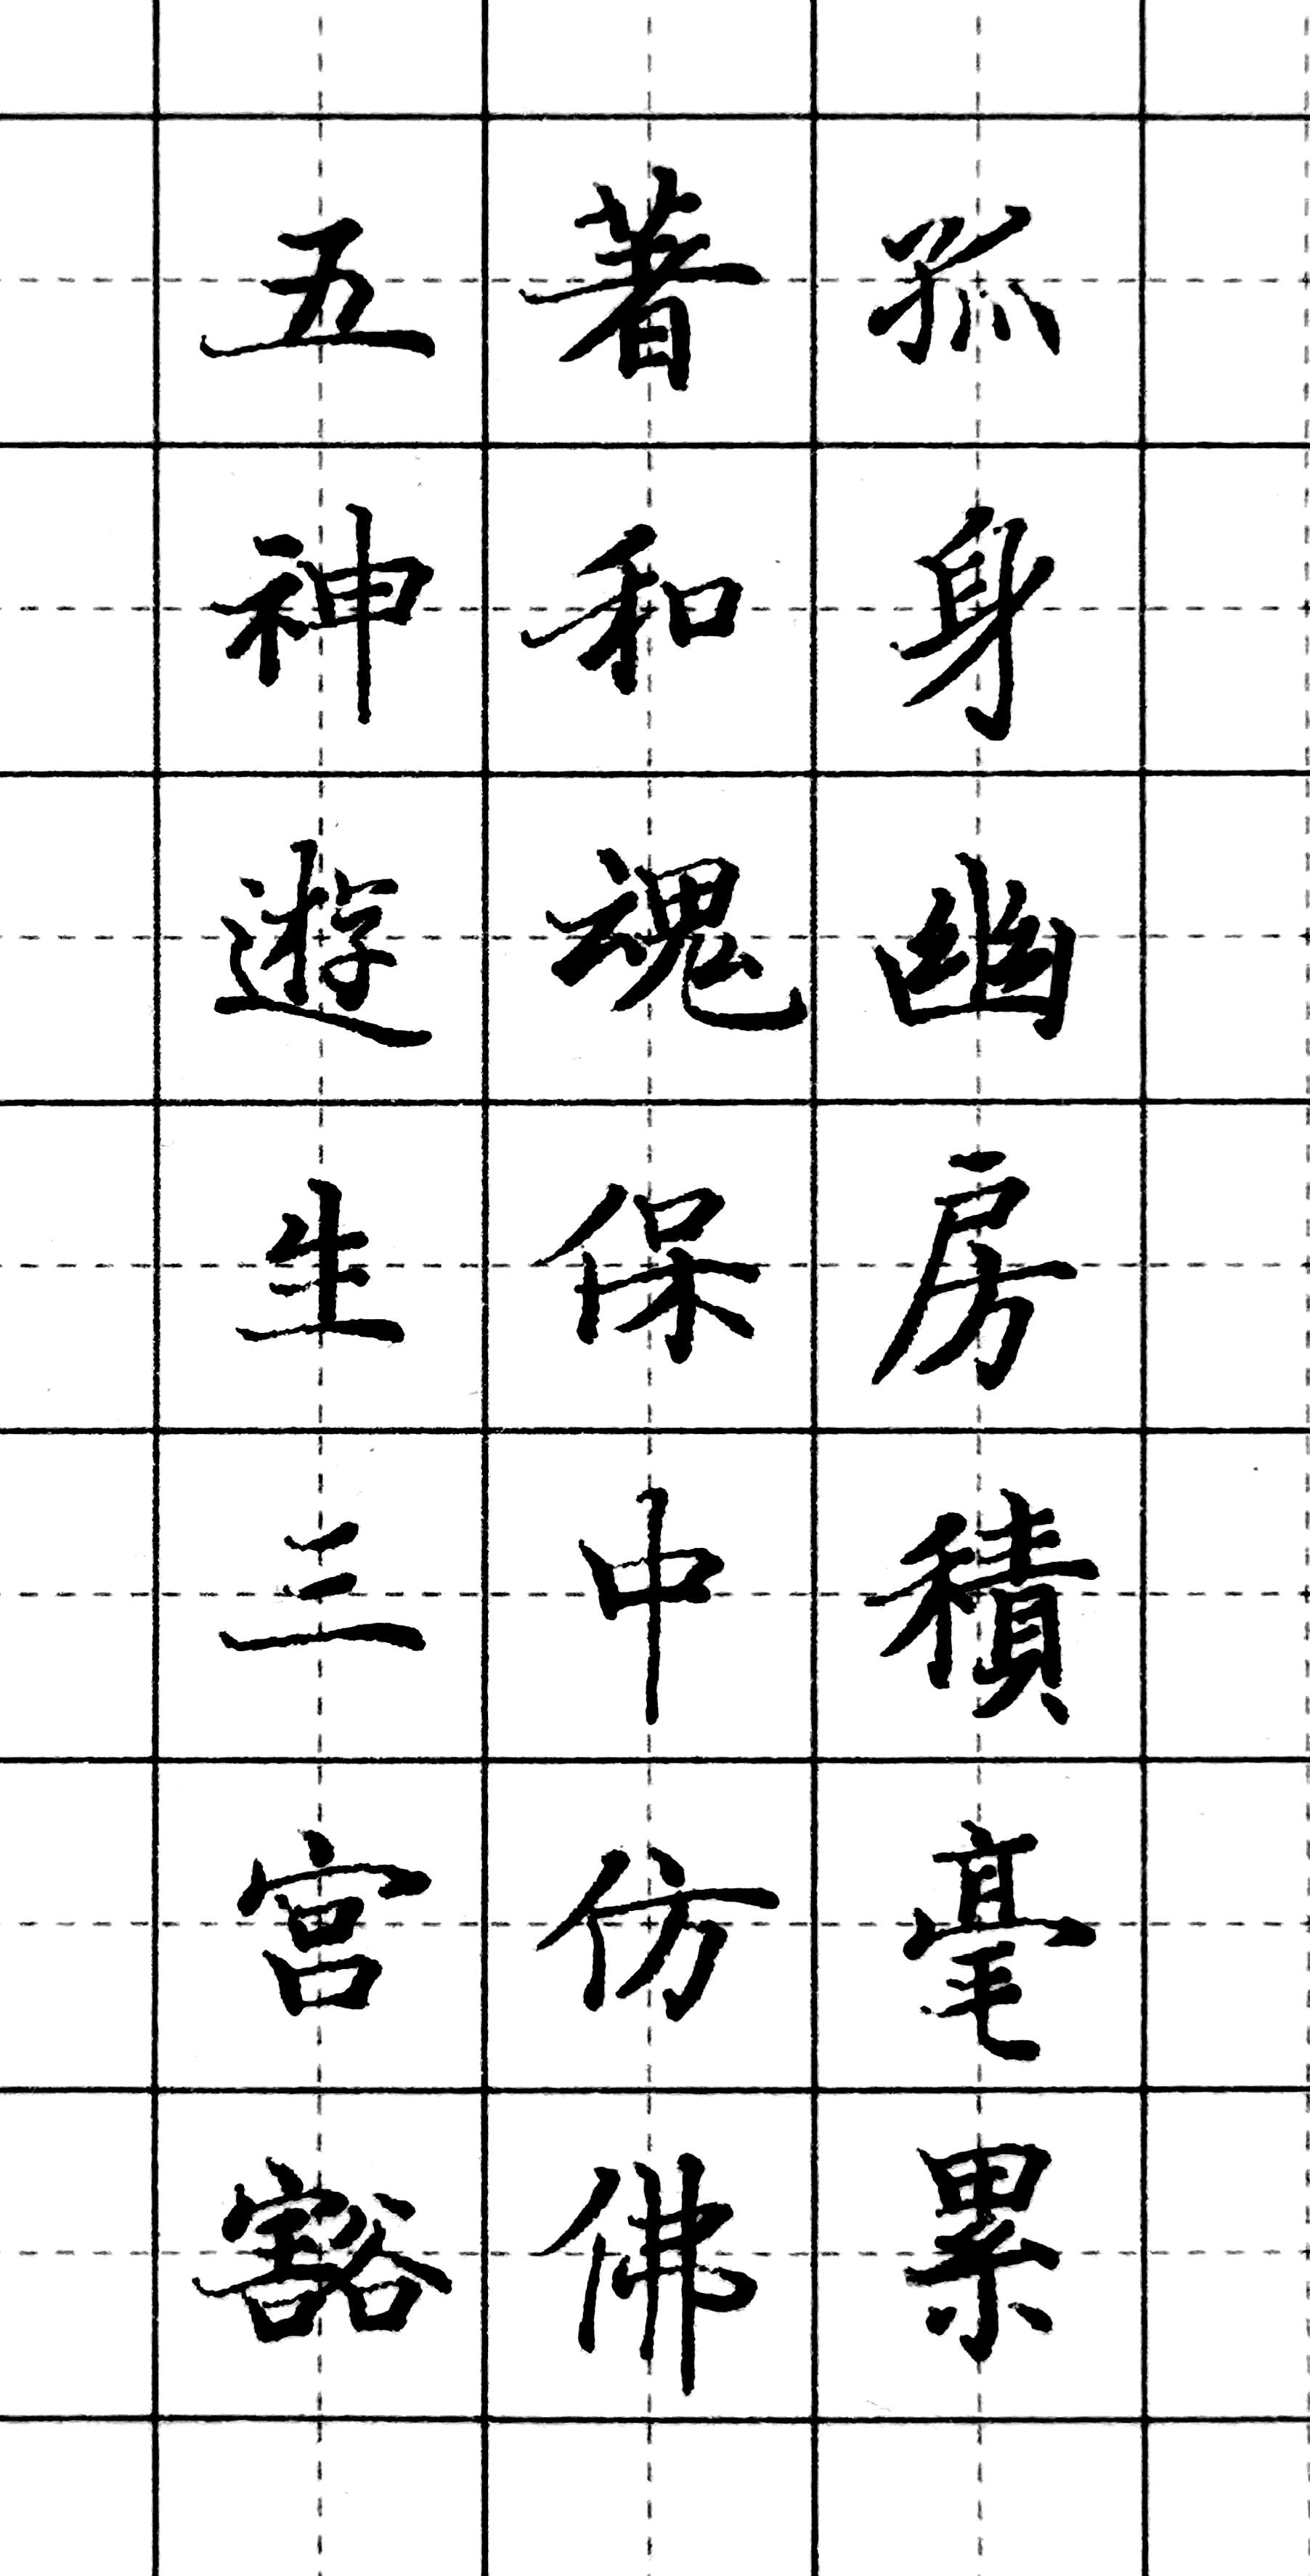 孤身幽房積毫累
著和魂保中仿佛
五神遊生三宮豁